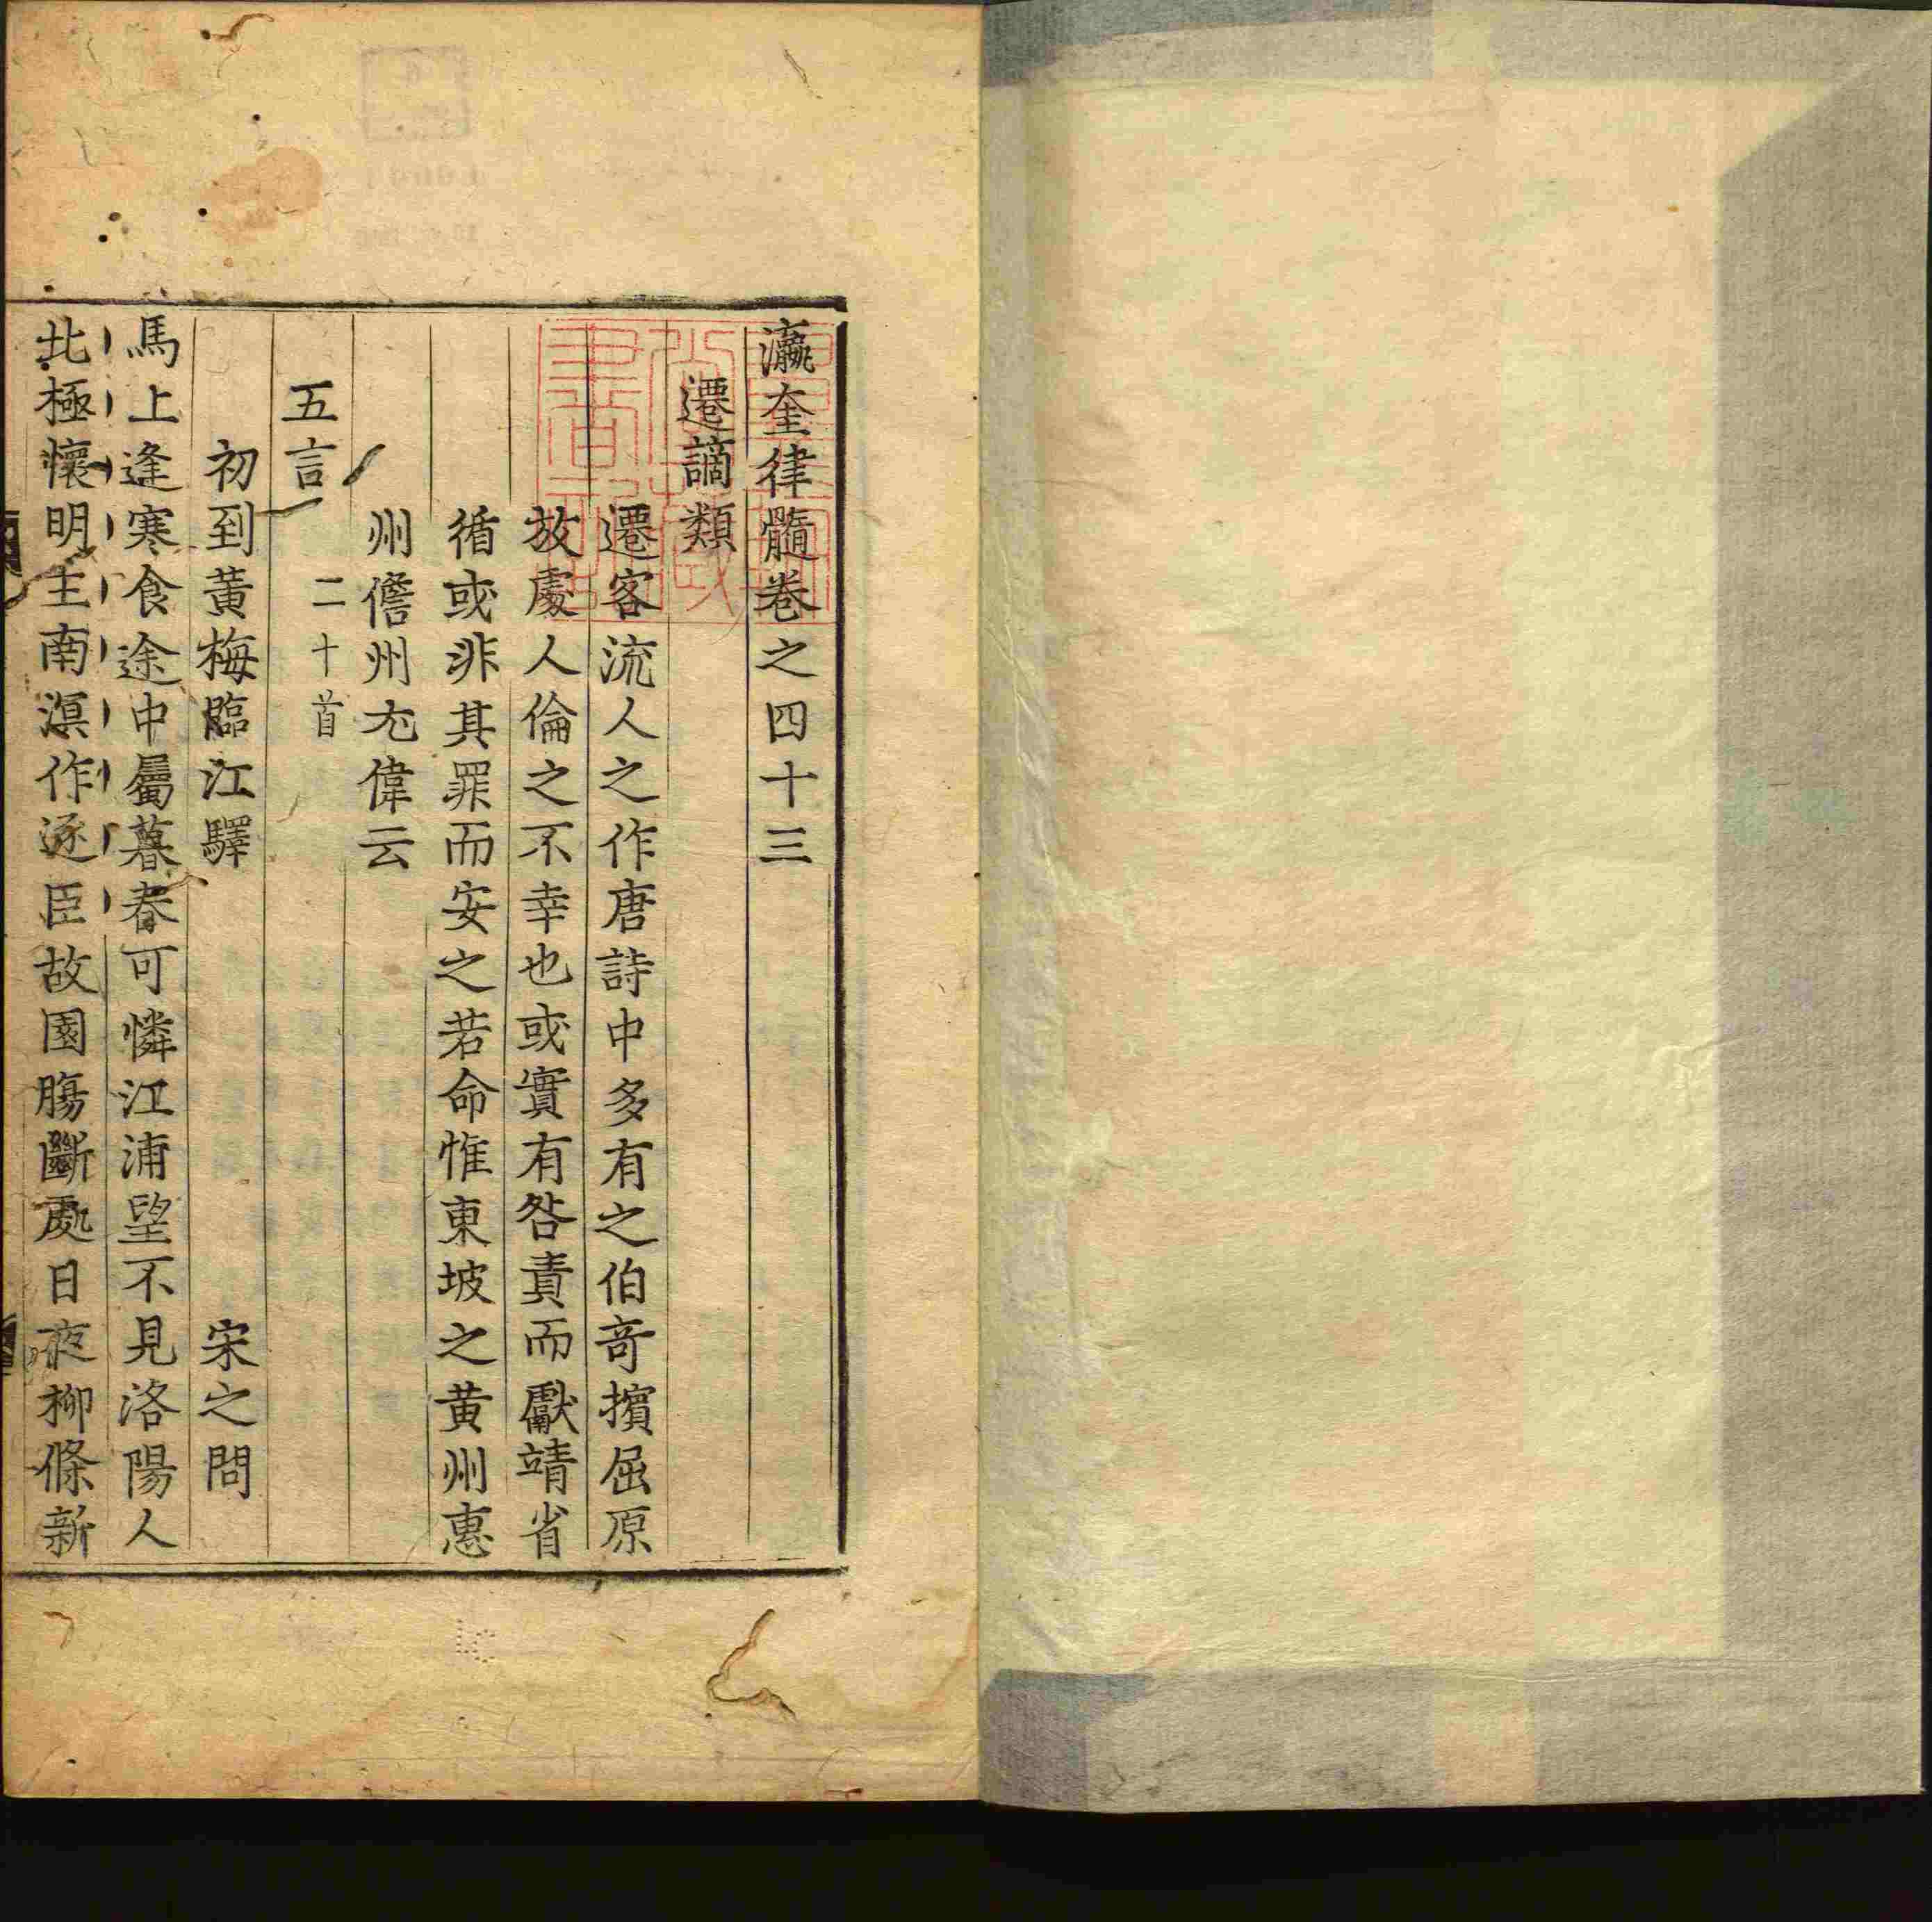 瀛奎律髓卷之四十三
遷謫類
遷客流人之作唐詩中多有之伯竒擯屈原
放處人倫之不幸也或實有咎責而獻靖省
循或非其罪而安之若命惟東坡之黄州惠
州儋州尤偉云
五言 二十首
初到黃梅臨江驛 宋之問
馬上逢寒食途中屬暮春可憐江浦望不見洛陽人
北極懷明主南溟作逐臣故園腸斷處日夜柳條新